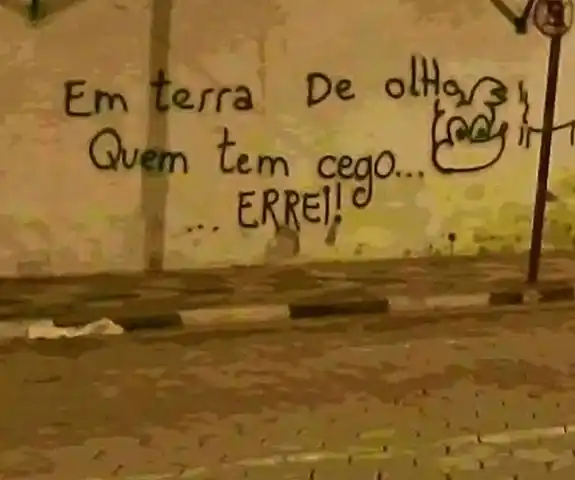 Em terra De olho
Quem tem cego...
... ERREI!